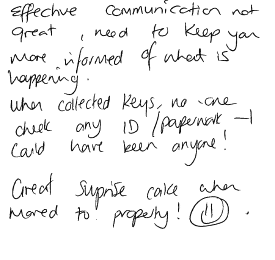 effective communication not
great, need to keep you
more informed of what is
happening.
when collected keys, no-one
check any ID / paperwork - I
could have been anyone!
Great suprise cake when
moved to property!